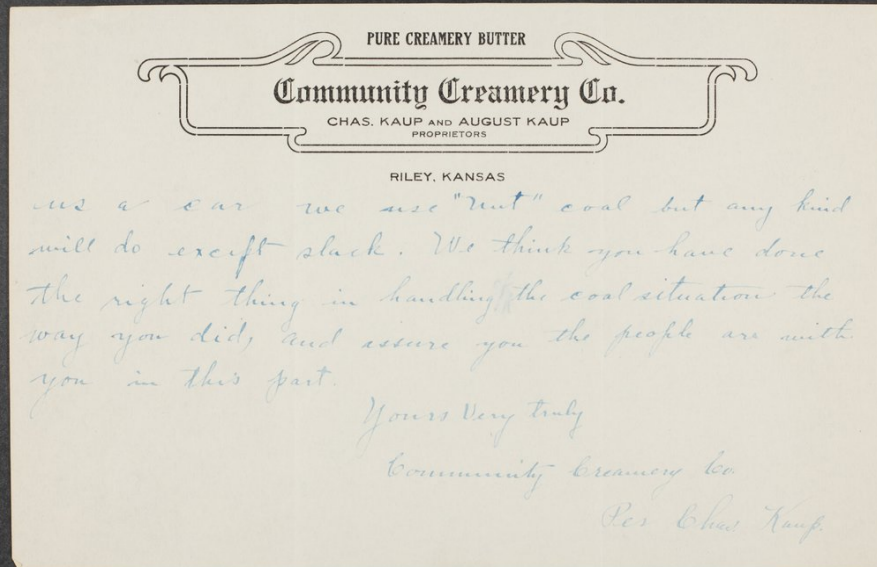 PURE CREAMERY BUTTER
Community Creamery Co.
CHAS. KAUP AND AUGUST KAUP
PROPRIETORS
RILEY, KANSAS
us a car we use "Nut" coal but any kind
will do except slack. We think you have done
the right thing in handling the coal situation the
way you did, and assure you the people are with
you in this part.
Yours Very truly
Community Creamery Co.
Per Chas Kaup.